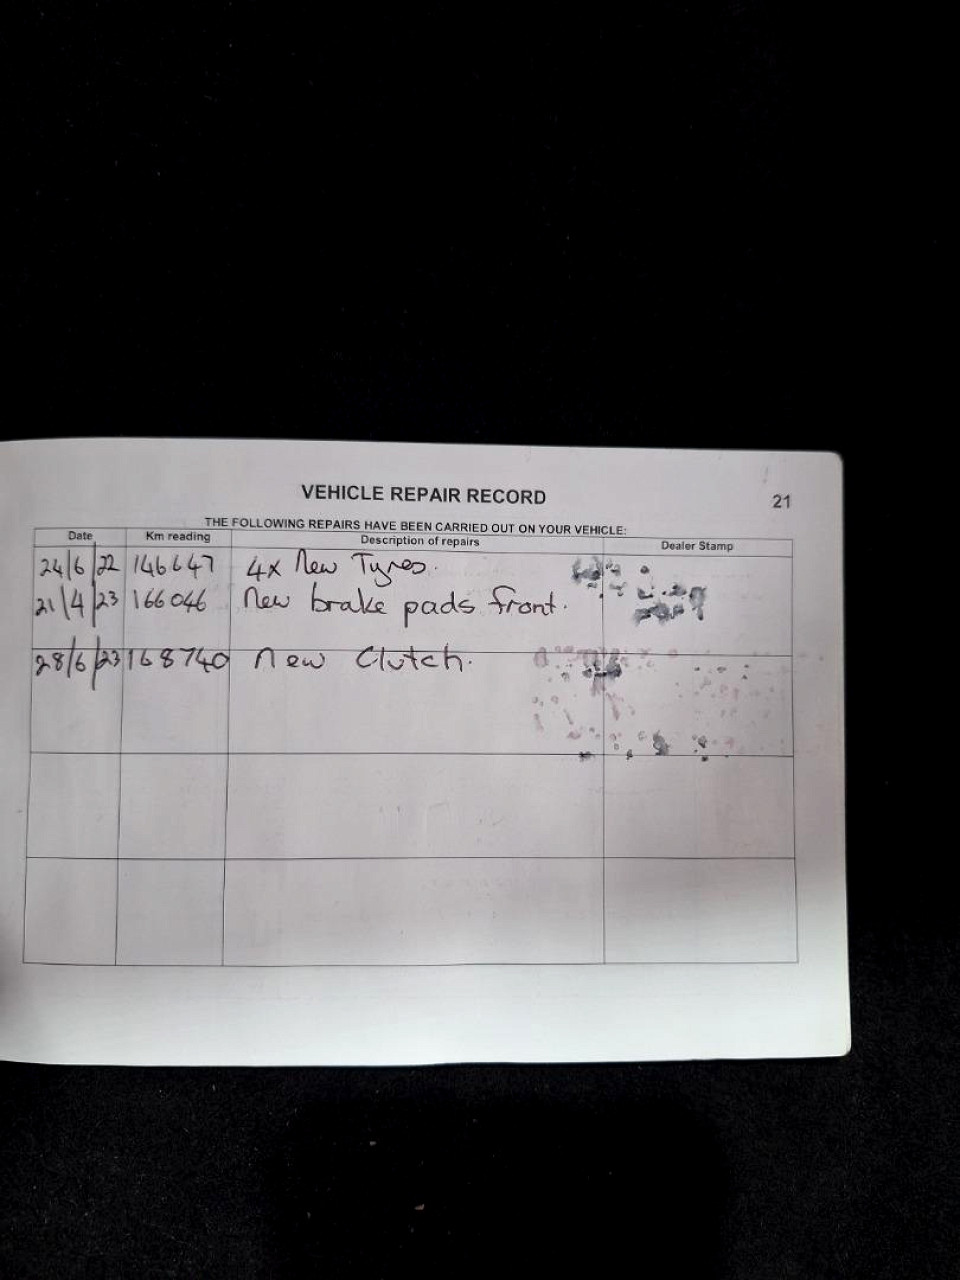 VEHICLE REPAIR RECORD
21
THE FOLLOWING REPAIRS HAVE BEEN CARRIED OUT ON YOUR VEHICLE:
Date Km reading Description of repairs Dealer Stamp
24/6/22 146647 4x New Tyres.
21/4/23 166046 New brake pads front.
28/6/23 168740 new Clutch.